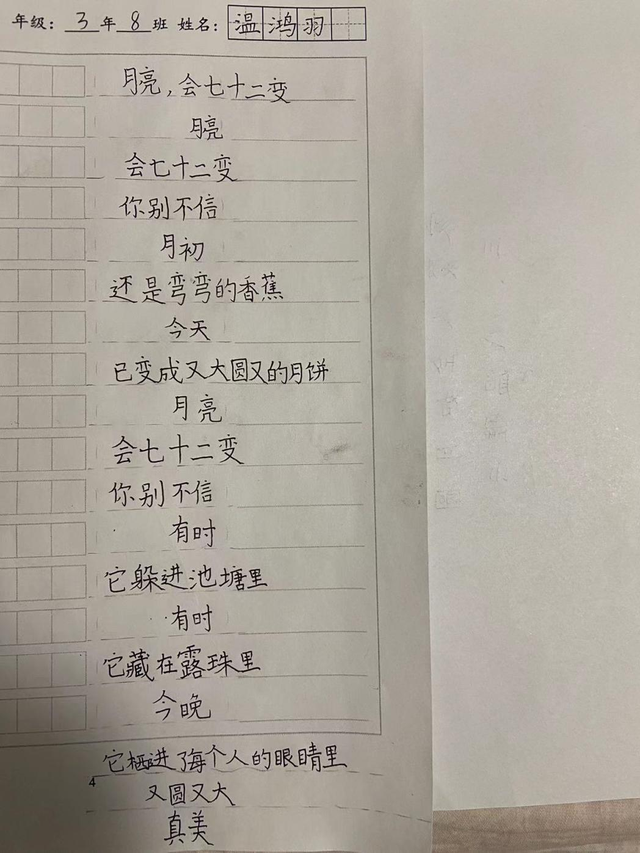 年级：3年8班 姓名：温鸿羽
月亮，会七十二变
月亮
会七十二变
你别不信
月初
还是弯弯的香蕉
今天
已变成又大圆又的月饼
月亮
会七十二变
你别不信
有时
它躲进池塘里
有时
它藏在露珠里
今晚
它栖进了每个人的眼睛里
4
又圆又大
真美